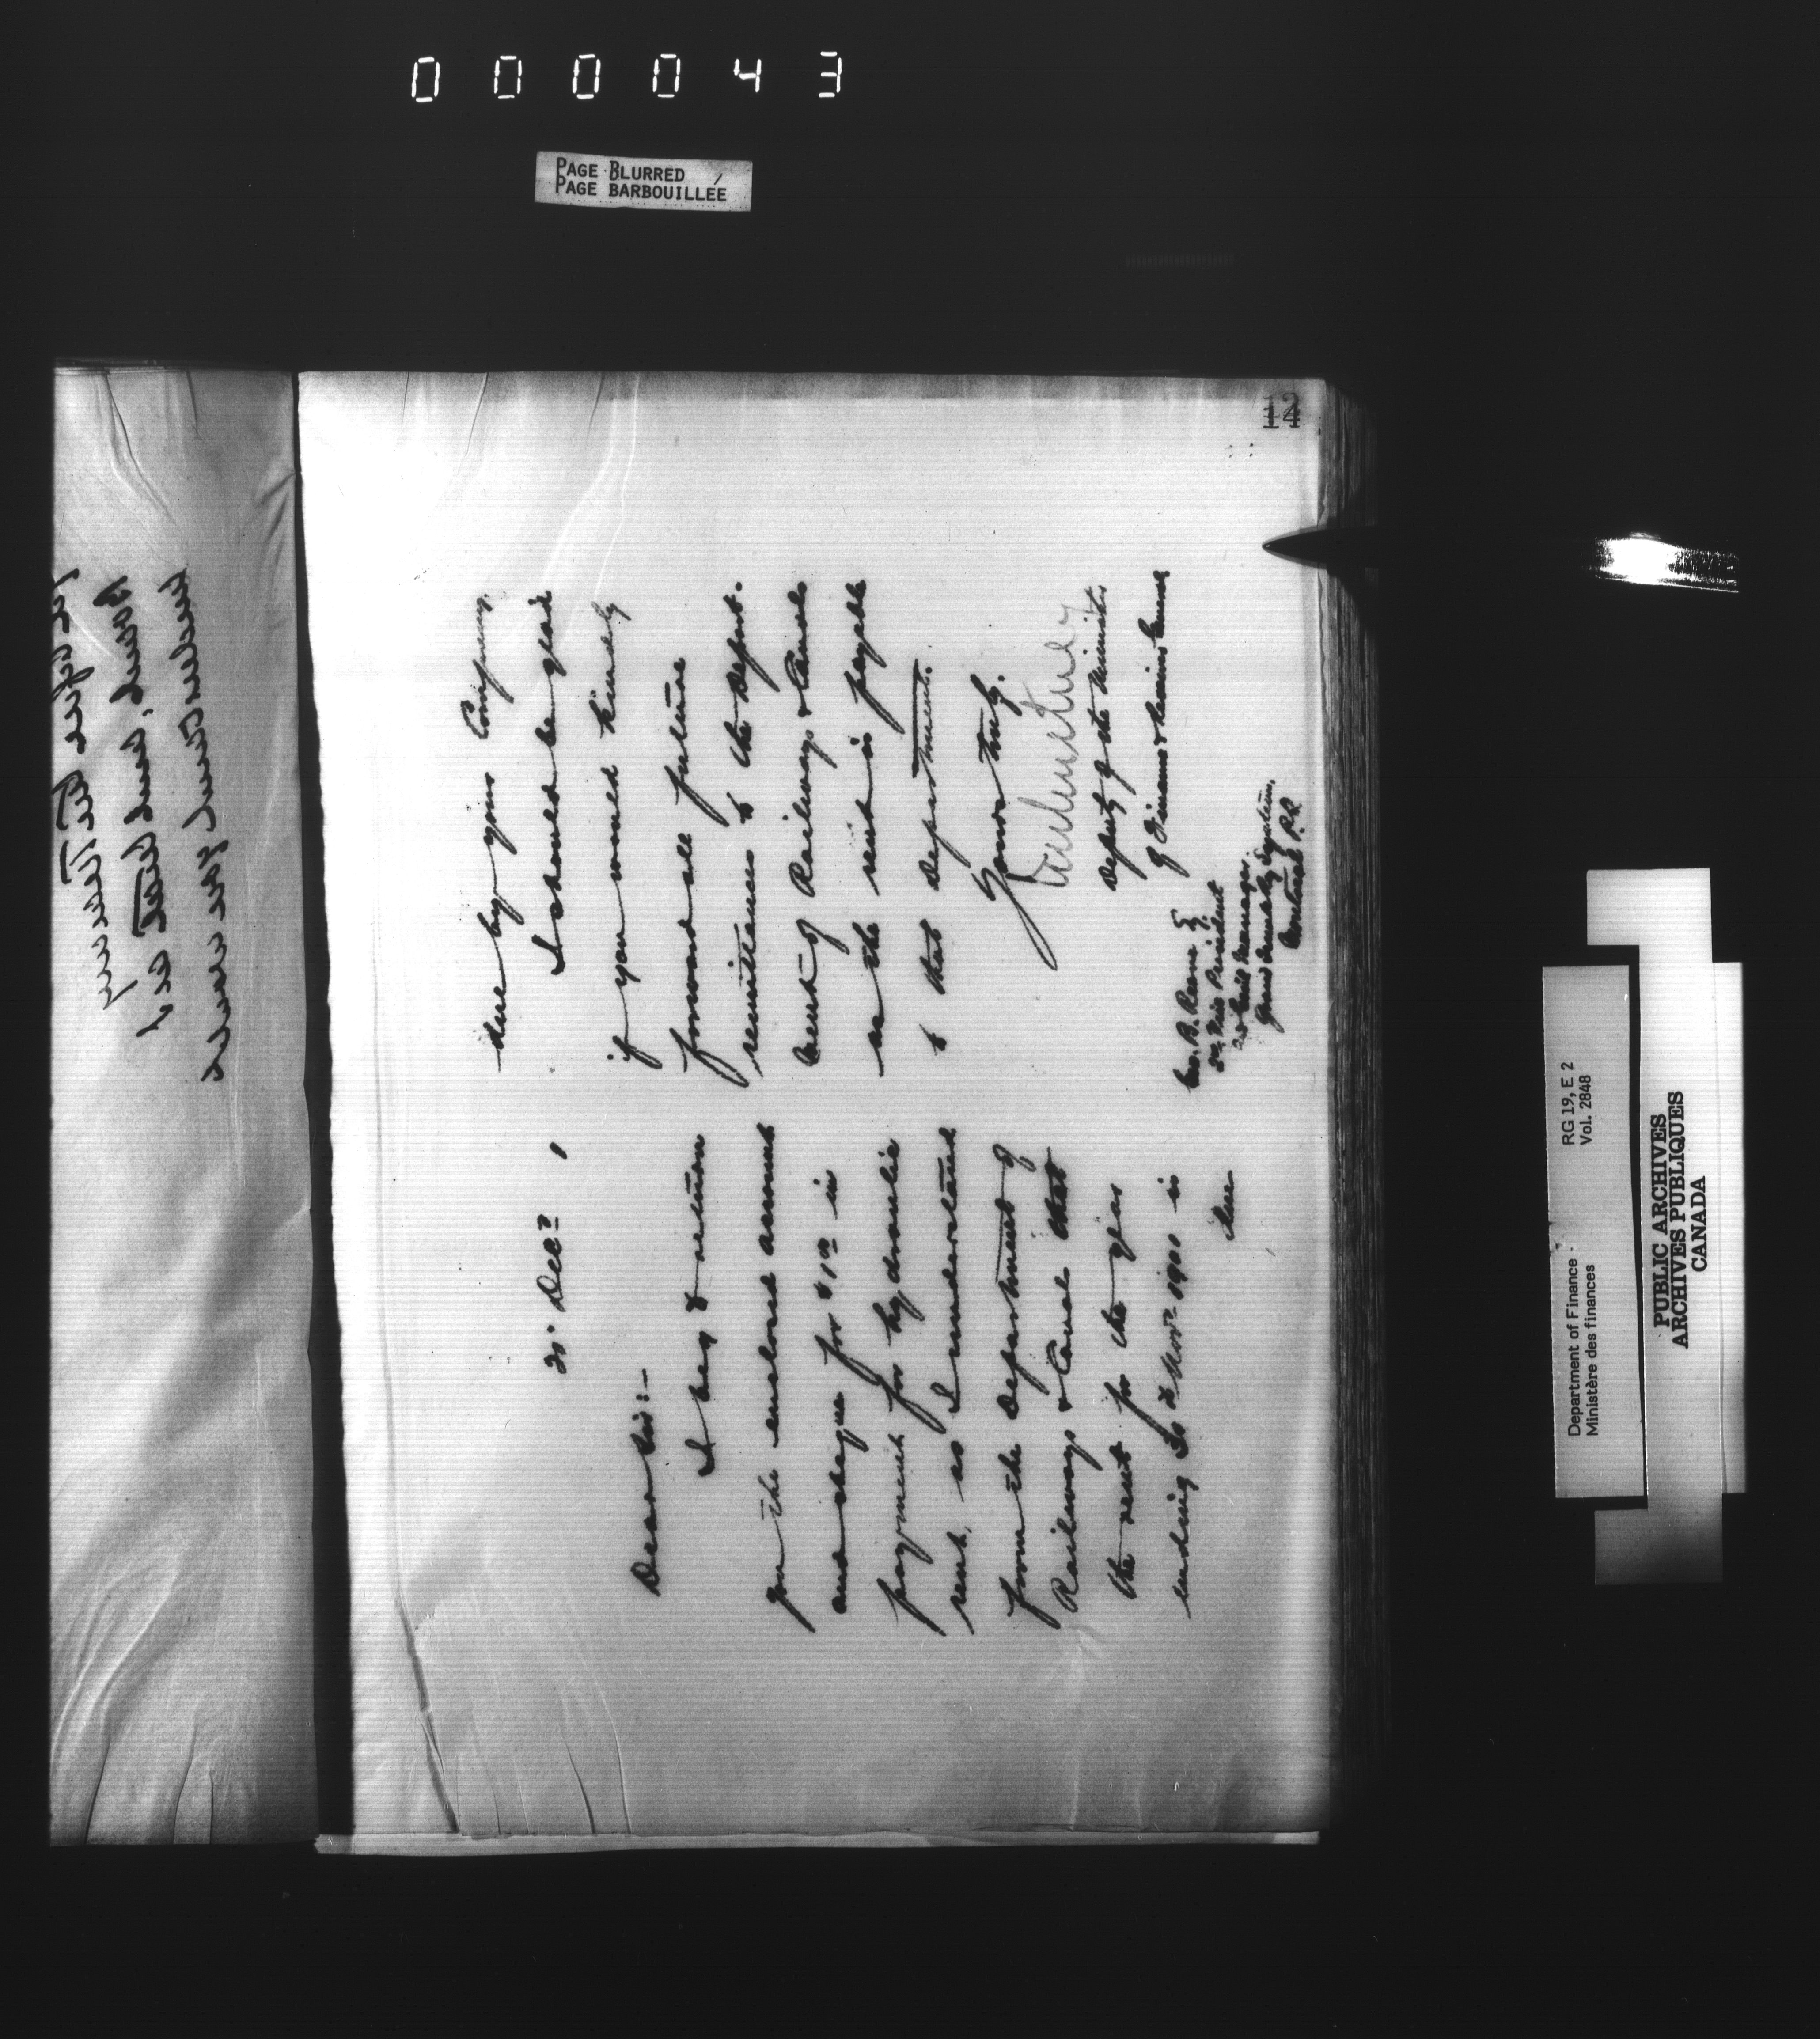 000043
PAGE BLURRED
PAGE BARBOUILLÉE
12
20. Decr 1
Dear Sir:—
I beg to return
you the enclosed account
and cheque for $1.00 in
payment for hydraulic
rent, as I understand
from the Department of
Railways & Canals that
the rent for the year
ending 30th Novr 1901 is
due
due by your Company
I should be glad
if you would kindly
forward all future
remittances to the Depart-
ment of Railways & Canals
as the rent is payable
to that Department.
Yours truly,
Deputy of the Minister
of Finance & Receiver General
Geo. B. Reeve Esq.
2d Vice President
& Genl Manager,
Grand Trunk Ry System,
Montreal P.Q.
Department of Finance
Ministère des finances
RG 19, E 2
Vol. 2848
PUBLIC ARCHIVES
ARCHIVES PUBLIQUES
CANADA